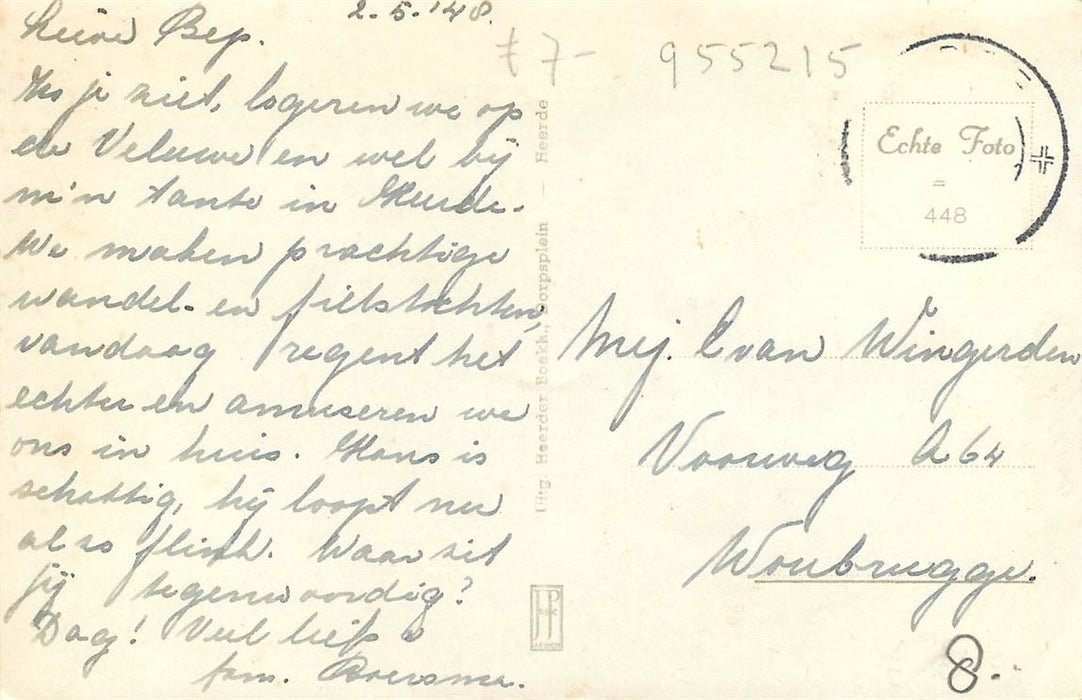 2-5-'48.
Lieve Bep.
Als je ziet, logeren we op
de Veluwe en wel bij
m'n tante in Heerde.
We maken prachtige
wandel- en fietstochten,
vandaag regent het
echter en amuseren we
ons in huis. Hans is
schattig, hij loopt nu
al zo flink. Waar zit
jij tegenwoordig?
Dag! Veel liefs v
fam. Boersma.
Uitg. Heerder Boekh., Dorpsplein — Heerde
JP
£7-
955215
Echte Foto
=
448
Mej. E van Wingerden
Voorweg A 64
Woubrugge.
8.